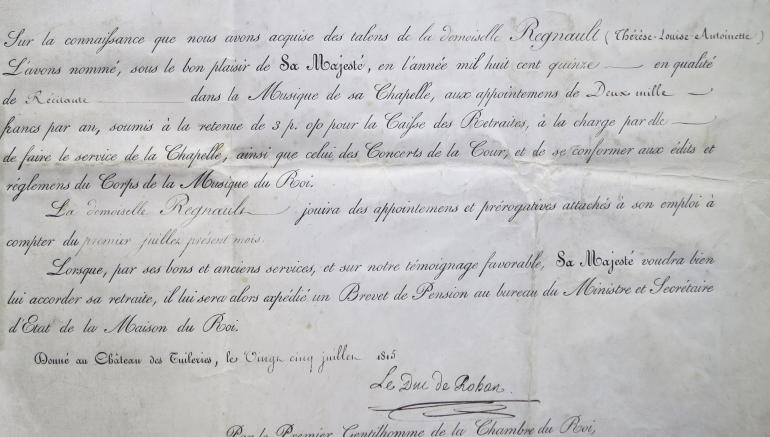 Sur la connaissance que nous avons acquise des talens de la demoiselle Regnault (Thérèse-Louise-Antoinette)
L'avons nommé, sous le bon plaisir de Sa Majesté, en l'année mil huit cent quinze — en qualité
de Récitante — dans la Musique de sa Chapelle, aux appointemens de Deux mille —
francs par an, soumis à la retenue de 3 p. o/o pour la Caisse des Retraites, à la charge par elle —
de faire le service de la Chapelle, ainsi que celui des Concerts de la Cour, et de se conformer aux édits et
règlemens du Corps de la Musique du Roi.
La demoiselle Regnault — jouira des appointemens et prérogatives attachés à son emploi à
compter du premier juillet présent mois.
Lorsque, par ses bons et anciens services, et sur notre témoignage favorable, Sa Majesté voudra bien
lui accorder sa retraite, il lui sera alors expédié un Brevet de Pension au bureau du Ministre et Secrétaire
d'Etat de la Maison du Roi.
Donné au Château des Tuileries, les Vingt cinq juillet 1815
Le Duc de Rohan
Par le Premier Gentilhomme de la Chambre du Roi,